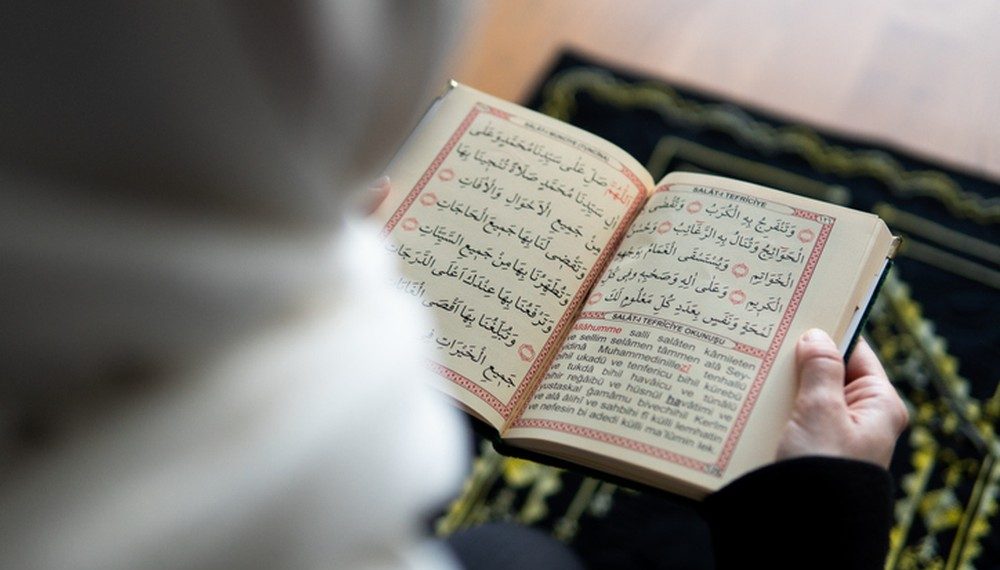 SALÂT-I TEFRİCİYE
وَتَنْفَرِجُ بِهِ الْكُرَبُ وَتُقْضٰى
الْحَوَائِجُ وَتُنَالُ بِهِ الرَّغَائِبُ وَحُسْنُ
الْخَوَاتِمِ وَيُسْتَسْقَى الْغَمَامُ بِوَجْهِهِ
الْكَرِيمِ وَعَلٰى اٰلِهِ وَصَحْبِهِ فِى كُلِّ
لَمْحَةٍ وَنَفَسٍ بِعَدَدِ كُلِّ مَعْلُومٍ لَكَ
SALÂT-I TEFRİCİYE OKUNUŞU
Allâhumme salli salâten kâmileten
ve sellim selâmen tâmmen alâ Sey-
yidinâ Muhammedinillezî tenhallü
bihil ukadü ve tenfericu bihil kürebü
ve tukdâ bihil havâicu ve tünâlü
bihir reğâibü ve hüsnül havâtimi ve
yustaskal ğamâmu bivechihil Kerîm
ve alâ âlihî ve sahbihi fî külli lemhatin
ve nefesin bi adedi külli ma'lûmin lek.
اَللّٰهُمَّ صَلِّ عَلٰى سَيِّدِنَا مُحَمَّدٍ وَعَلٰى
اٰلِ سَيِّدِنَا مُحَمَّدٍ صَلَاةً تُنْجِينَا بِهَا
مِنْ جَمِيعِ الْاَحْوَالِ وَالْاٰفَاتِ
وَتَقْضٖى لَنَا بِهَا جَمِيعَ الْحَاجَاتِ
وَتُطَهِّرُنَا بِهَا مِنْ جَمِيعِ السَّيِّئَاتِ
وَتَرْفَعُنَا بِهَا عِنْدَكَ اَعْلَى الدَّرَجَاتِ
وَتُبَلِّغُنَا بِهَا اَقْصَى
جَمِيعِ الْخَيْرَاتِ